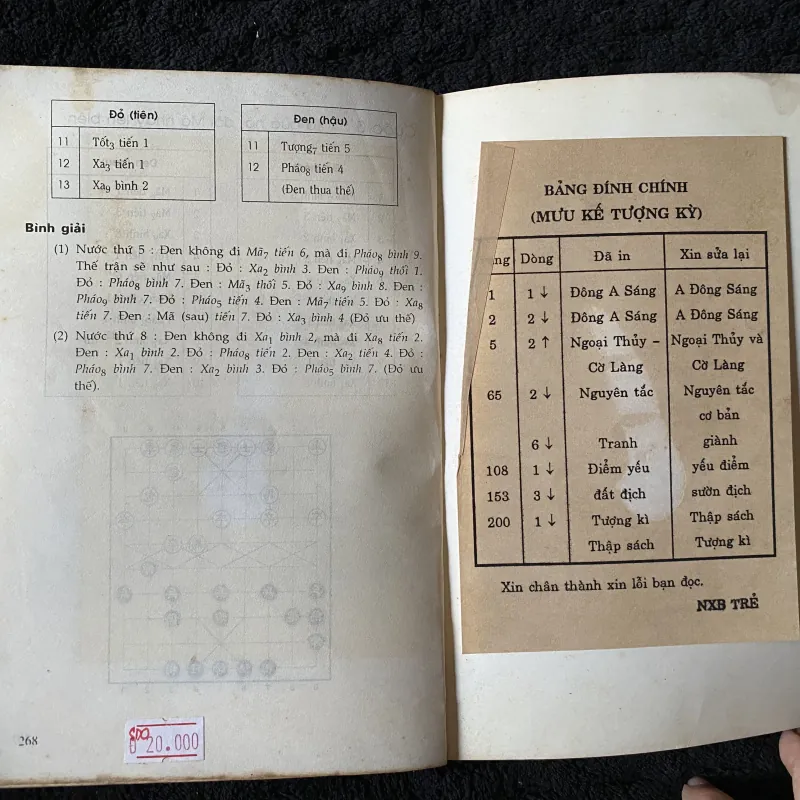 Đỏ (tiên)
11 Tốt3 tiến 1
12 Xa3 tiến 1
13 Xa9 bình 2
Đen (hậu)
11 Tượng7 tiến 5
12 Pháo8 tiến 4
(Đen thua thế)
Bình giải
(1) Nước thứ 5 : Đen không đi Mã7 tiến 6, mà đi Pháo8 bình 9.
Thế trận sẽ như sau : Đỏ : Xa2 bình 3. Đen : Pháo9 thối 1.
Đỏ : Pháo8 bình 7. Đen : Mã3 thối 5. Đỏ : Xa9 bình 8. Đen :
Pháo9 bình 7. Đỏ : Pháo5 tiến 4. Đen : Mã7 tiến 5. Đỏ : Xa8
tiến 7. Đen : Mã (sau) tiến 7. Đỏ : Xa3 bình 4 (Đỏ ưu thế)
(2) Nước thứ 8 : Đen không đi Xa1 bình 2, mà đi Xa8 tiến 2.
Đen : Xa1 bình 2. Đỏ : Pháo8 tiến 2. Đen : Xa2 tiến 4. Đỏ :
Pháo8 bình 7. Đen : Xa2 bình 3. Đỏ : Pháo5 bình 7. (Đỏ ưu
thế).
20.000
268
BẢNG ĐÍNH CHÍNH
(MƯU KẾ TƯỢNG KỲ)
ng Dòng Đã in Xin sửa lại
1 1 ↓ Đông A Sáng A Đông Sáng
2 2 ↓ Đông A Sáng A Đông Sáng
5 2 ↑ Ngoại Thủy – Ngoại Thủy và
Cờ Làng Cờ Làng
65 2 ↓ Nguyên tắc Nguyên tắc
cơ bản
6 ↓ Tranh giành
108 1 ↓ Điểm yếu yếu điểm
153 3 ↓ đất địch sườn địch
200 1 ↓ Tượng kì Thập sách
Thập sách Tượng kì
Xin chân thành xin lỗi bạn đọc.
NXB TRẺ